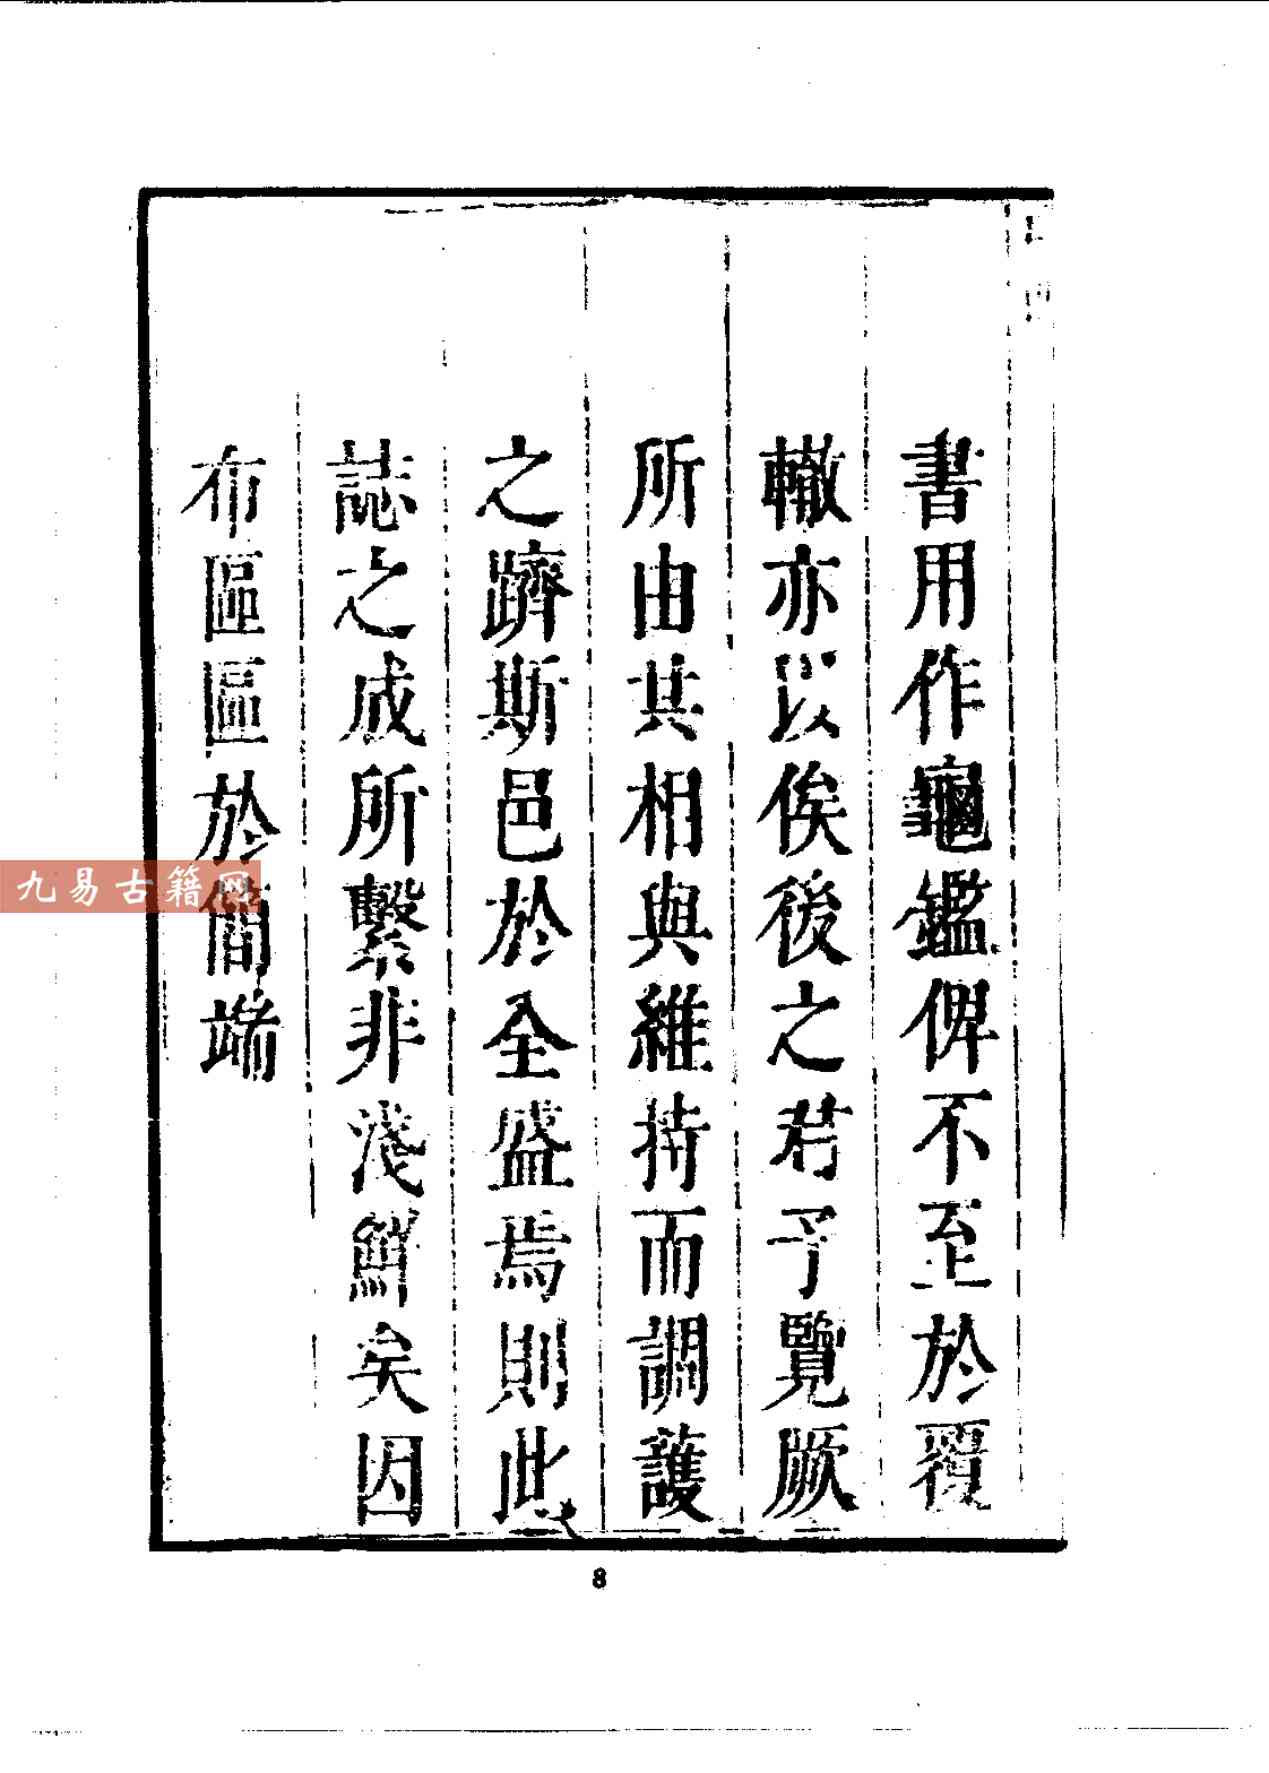 書用作龜鑑俾不至於覆
轍亦以俟後之君子覽厥
所由其相與維持而調護
之躋斯邑於全盛焉則此
誌之成所繫非淺鮮矣因
布區區於簡端
九易古籍网
8